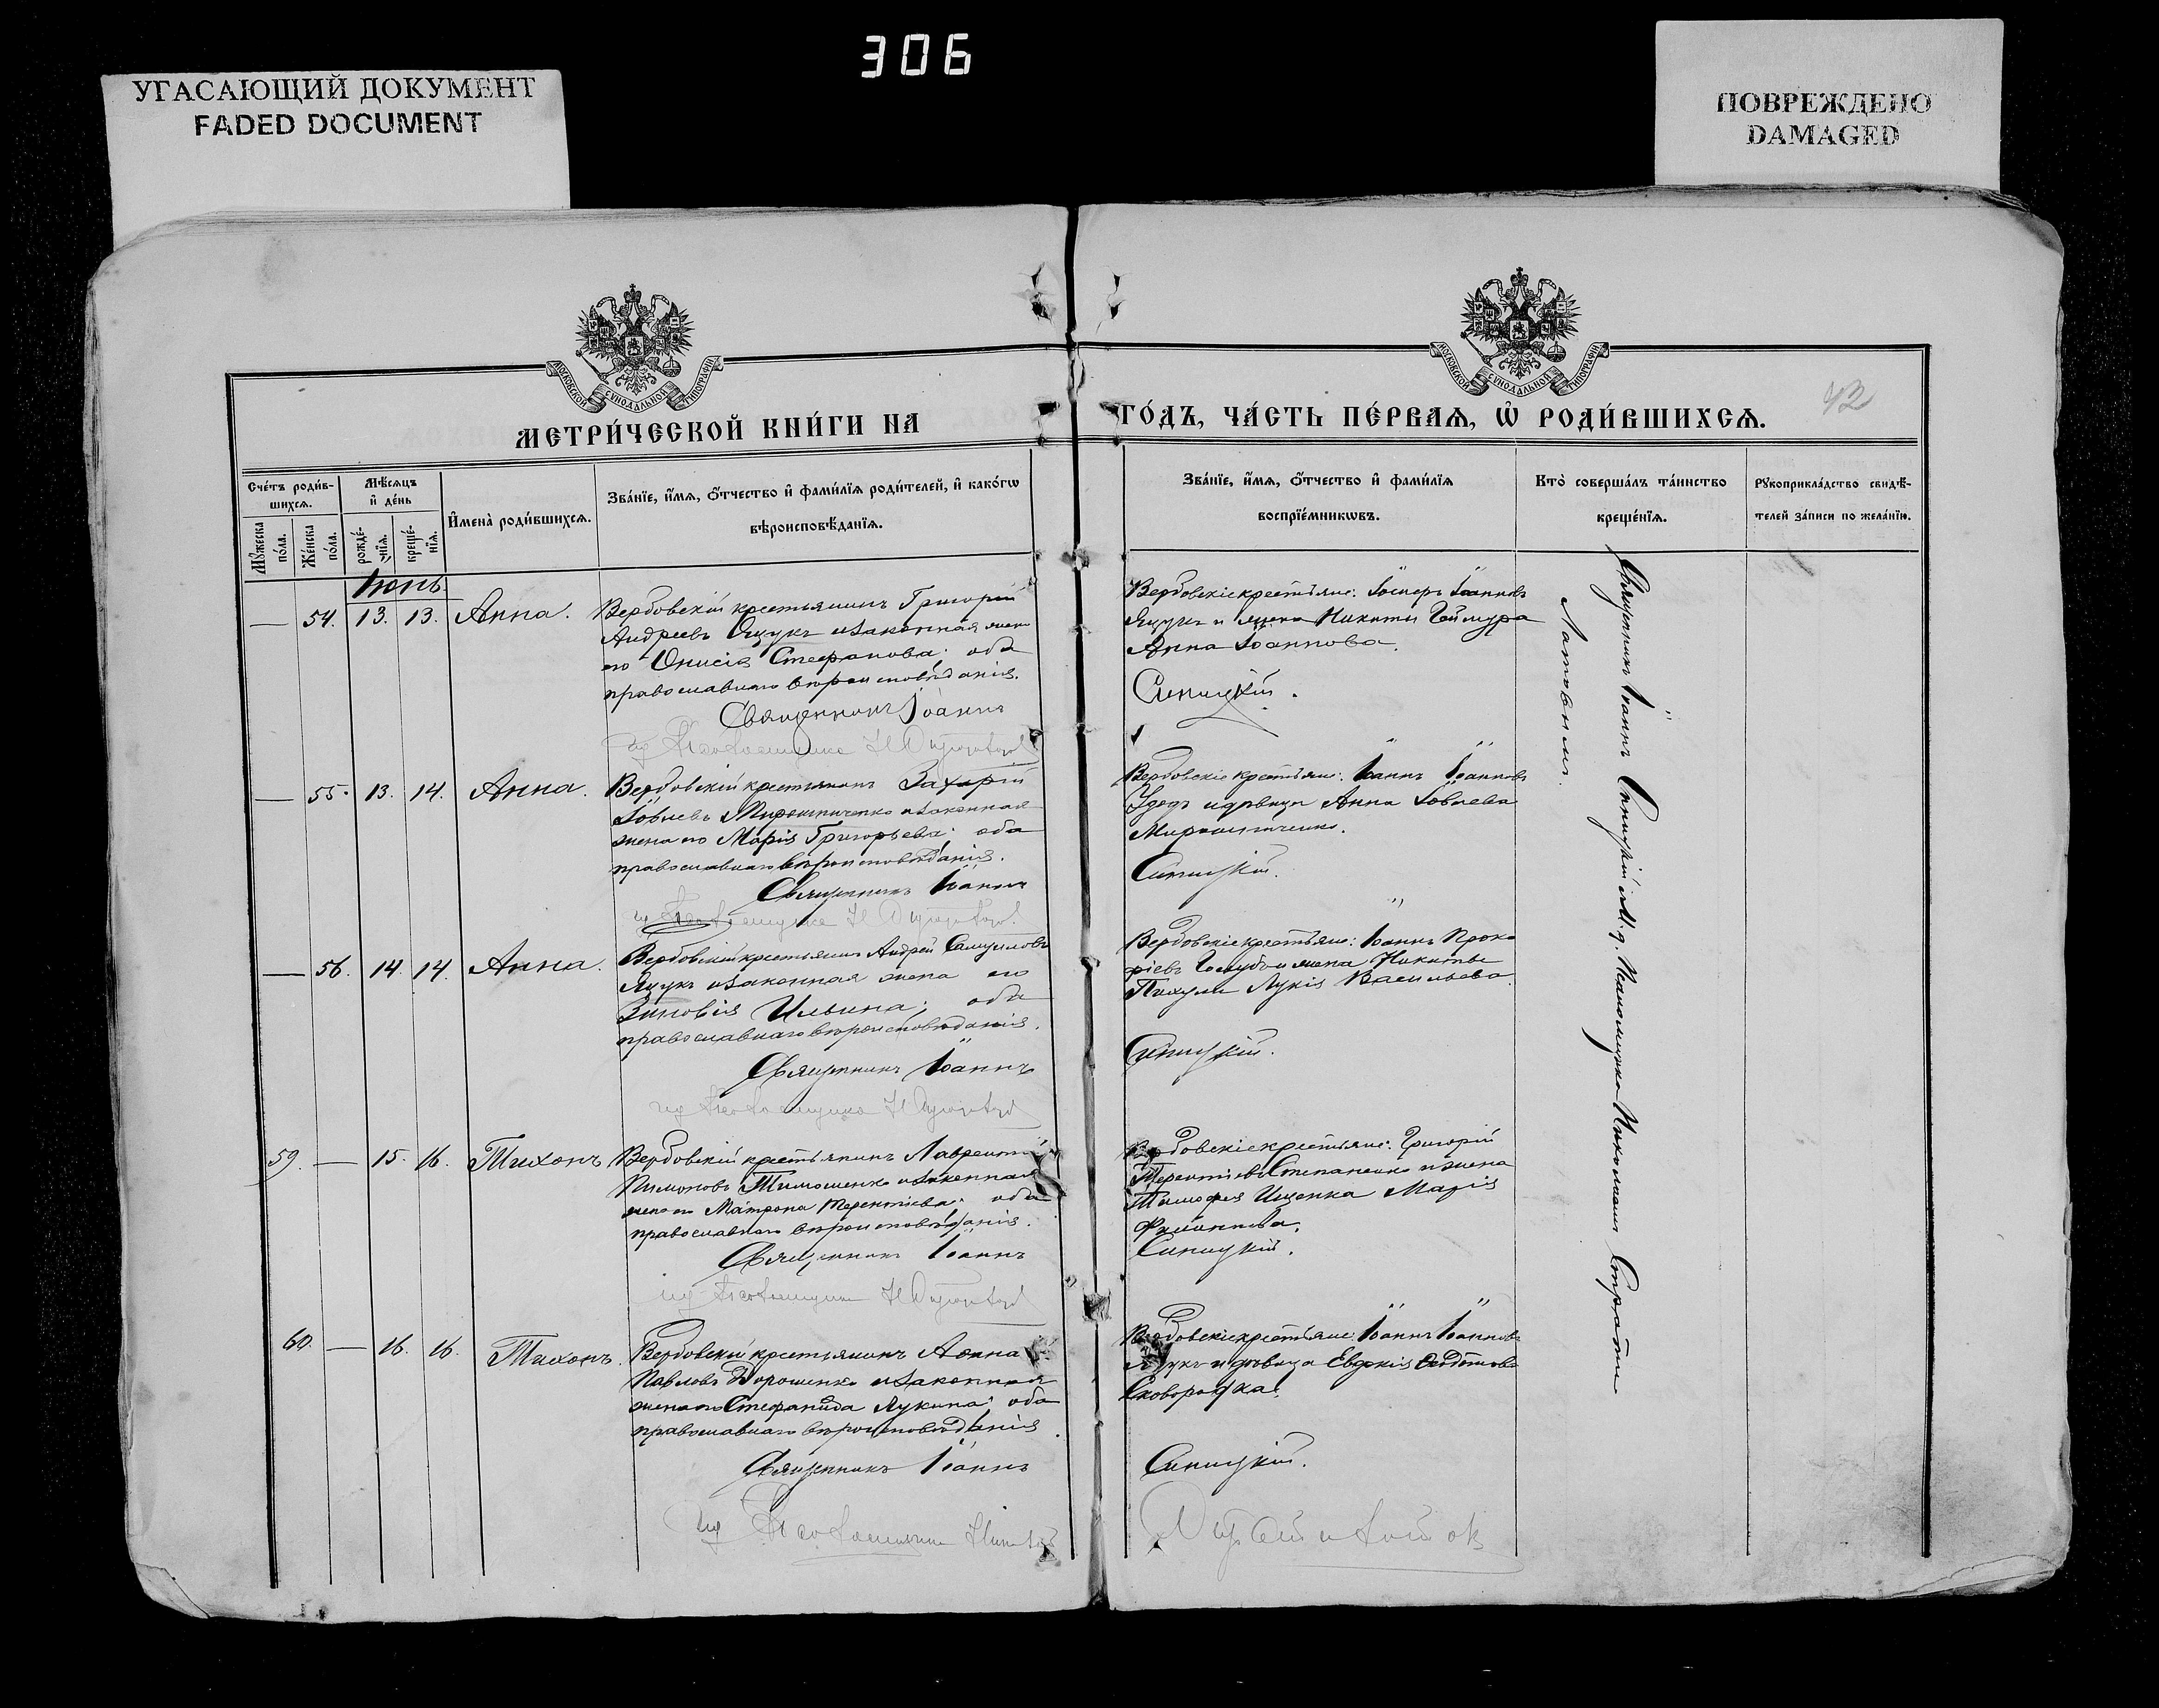 306
УГАСАЮЩИЙ ДОКУМЕНТ
FADED DOCUMENT
ПОВРЕЖДЕНО
DAMAGED
МОСКОВСКОЙ СѴНОДАЛЬНОЙ ТИПОГРАФІИ
МЕТРИ́ЧЕСКОЙ КНИ́ГИ НА
МОСКОВСКОЙ СѴНОДАЛЬНОЙ ТИПОГРАФІИ
ГО́ДЪ, ЧА́СТЬ ПЕ́РВАѦ, Ѡ҆ РОДИ́ВШИХСѦ.
42
Сче́тъ роди́в-
шихсѧ.
Мꙋ́жеска по́ла.
Же́нска по́ла.
Мѣ́сѧцъ
и҆ де́нь
рожде́-
нїѧ.
креще́-
нїѧ.
И҆мена̀ роди́вшихсѧ.
Зва́нїе, и҆́мѧ, ѻ҆́тчество и҆ фами́лїѧ роди́телей, и҆ како́гѡ
вѣроисповѣ́данїѧ.
Зва́нїе, и҆́мѧ, ѻ҆́тчество и҆ фами́лїѧ
воспрїе́мникѡвъ.
Кто̀ соверша́лъ та́инство
креще́нїѧ.
Рꙋкоприкла́дство свидѣ́-
телей за́писи по жела́нїю.
Іюнь.
— 54. 13. 13. Анна.
Вербовскій крестьянинъ Григорій
Андреевъ Ящукъ и законная жена
его Онисія Стефанова; оба
православнаго вѣроисповѣданія.
Священникъ Іоаннъ
Вербовскіе крестьяне: Іосифъ Іоанновъ
Ящукъ и жена Никиты
Анна Іоаннова.
Синицкій.
— 55. 13. 14. Анна.
Вербовскій крестьянинъ Захарій
Іовлевъ Мирошниченко и законная
жена его Марія Григорьева; оба
православнаго вѣроисповѣданія.
Священникъ Іоаннъ
Вербовскіе крестьяне: Іоаннъ Іоанновъ
Удодъ и дѣвица Анна Іовлева
Мирошниченко.
Синицкій.
— 56. 14. 14. Анна.
Вербовскій крестьянинъ Андрей Самуиловъ
Ящукъ и законная жена его
Зиновія Ильина; оба
православнаго вѣроисповѣданія.
Священникъ Іоаннъ
Вербовскіе крестьяне: Іоаннъ Проко
фіевъ Голубъ и жена Никиты
Лукія Васильева.
Синицкій.
59. — 15. 16. Тихонъ
Вербовскій крестьянинъ Лаврентій
Пимоновъ Тимошенко и законная
жена его Матрона Терентіева; оба
православнаго вѣроисповѣданія.
Священникъ Іоаннъ
Вербовскіе крестьяне: Григорій
Терентіевъ Степаненко и жена
Тимофея Ищенка Марія
Филиппова.
Синицкій.
60. — 16. 16. Тихонъ.
Вербовскій крестьянинъ
Павловъ Дорошенко и законная
жена его Стефанида Лукина; оба
православнаго вѣроисповѣданія.
Священникъ Іоаннъ
Вербовскіе крестьяне: Іоаннъ Іоанновъ
Ящукъ и дѣвица Евдокія Ѳедотова
Сковородка.
Синицкій.
Священникъ Іоаннъ Синицкій и. д. Псаломщика Николай